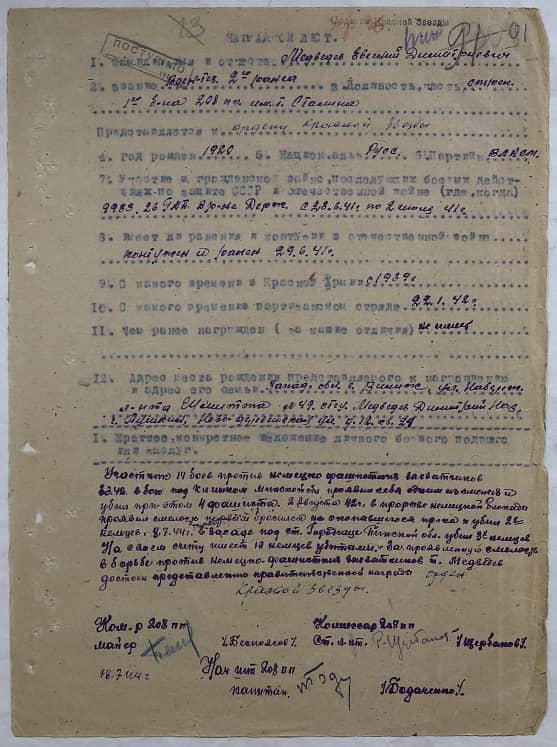 Орденом Красной Звезды
91
13
ПОСТУПИЛО
НАГРАДНОЙ ЛИСТ.
1. Фамилия, имя и отчество Медведев Евгений Димитриевич
2. Звание 2го ранга 3. Должность, часть стрел.
1го б-на 208 пп. им. т. Сталина
Представляется к ордену Красной Звезды
4. Год рожден. 1920 5. Национал. Русс. 6. Партийн. ВЛКСМ.
7. Участие в гражданской войне, последующих боевых дейст-
виях по защите СССР и отечественной войне (где, когда)
с 23.6.41г по 2 июля 41г.
8. Имеет ли ранения и контузии в отечественной войне
контужен и ранен 29.6.41г.
9. С какого времени в Красной Армии с 1939г.
10. С какого времени в партизанском отряде 22.1.42г.
11. Чем ранее награжден (за какие отличия) не имеет
12. Адрес места рождения представляемого к награждению
и адрес его семьи
№49. отец Медведев Димитрий
1. Краткое, конкретное изложение личного боевого подвига
или заслуг.
Участник 14 боев против немецко фашистских захватчиков
в бою под Минской проявил себя
убил при этом 4 фашиста. 2 августа 42г. в прорыве немецкой блокады
проявил смелость бросился на и убил 2х
немцев. 9.7.44г. в засаде под ст. обл. убил 3х немцев
На своем счету имеет 19 немцев убитыми. За проявленную смелость
в борьбе против немецко-фашистских захватчиков т. Медведев
достоен представлению правительственной награды орден
Красной Звезды.
Ком-р 208 пп Комиссар 208 пп
майор /Беспоясов/. Ст. л-нт. /Щербаков/.
18.7.44г Нач шт 208 пп
капитан. /Богаченко/.